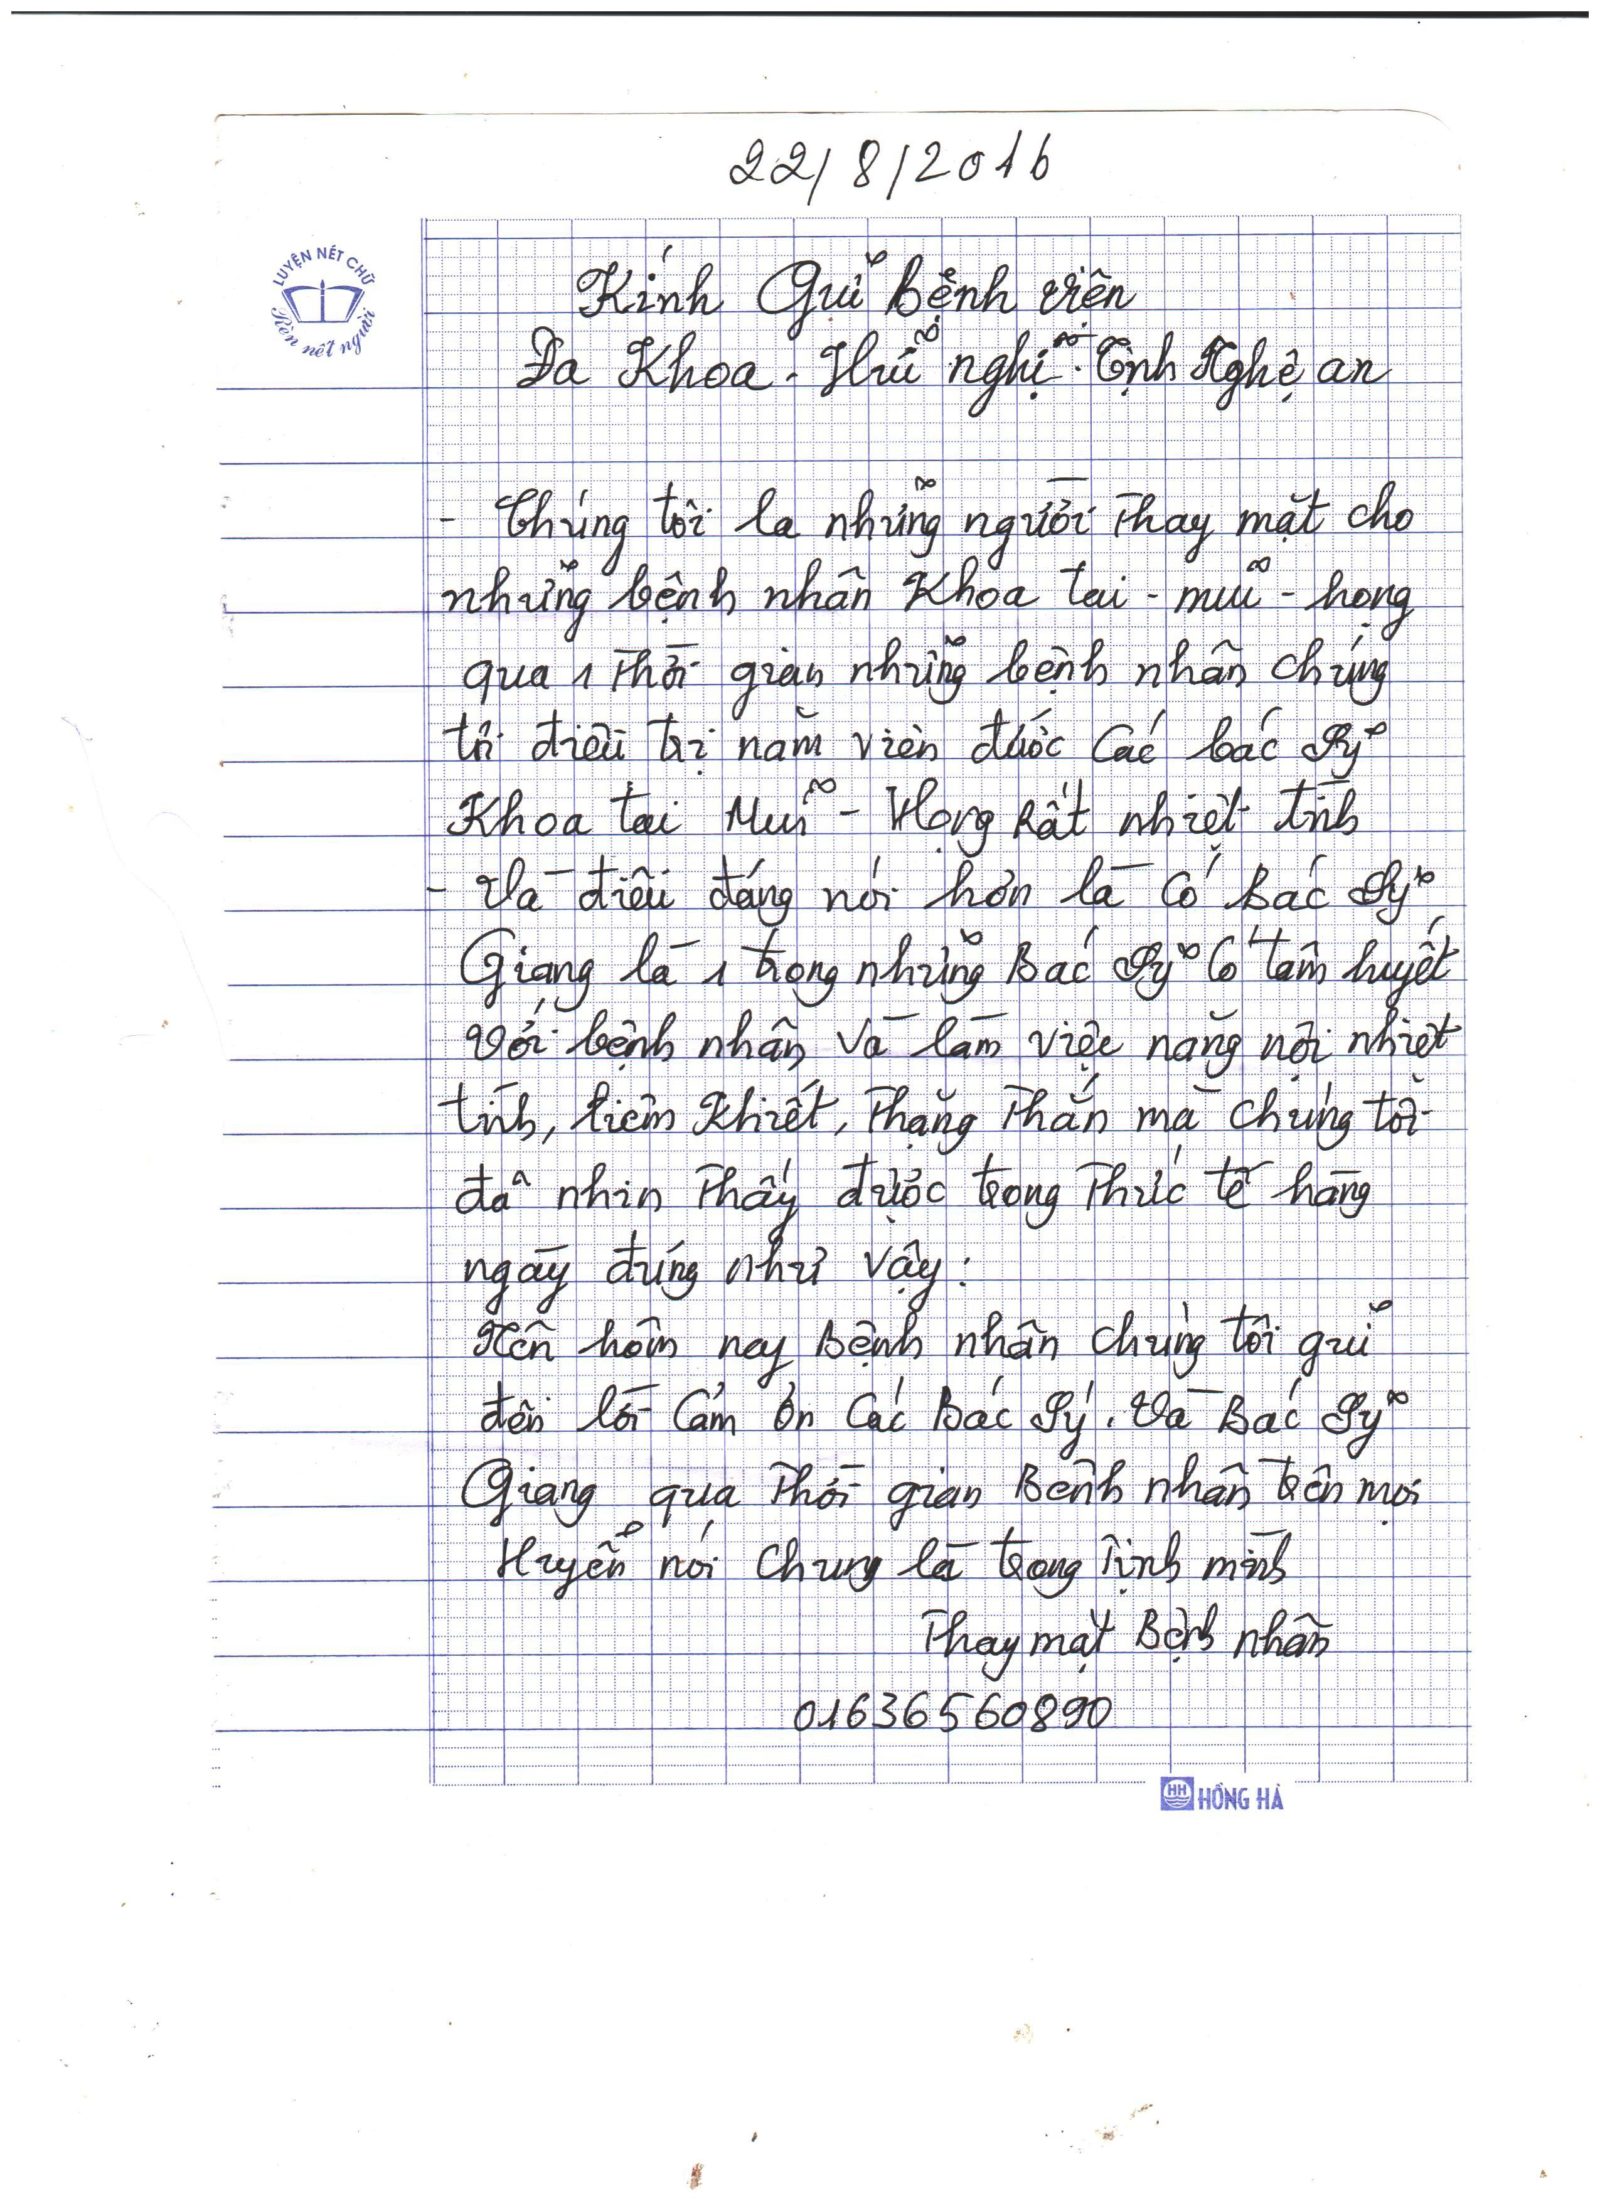 22/8/2016
LUYỆN NÉT CHỮ
Rèn nết người
Kính Gửi Bệnh viện
Đa Khoa - Hữu nghị Tỉnh Nghệ an
- Chúng tôi là những người Thay mặt cho
những bệnh nhân Khoa tai - mũi - họng
qua 1 Thời gian những bệnh nhân chúng
tôi điều trị nằm viện được Các bác sỹ
Khoa tai Mũi - Họng Rất nhiệt tình
- Và điều đáng nói hơn là Có Bác Sỹ
Giang là 1 trong những Bác Sỹ Có tâm huyết
với bệnh nhân và làm việc năng nội nhiệt
tình, liêm Khiết, Thẳng Thắn mà chúng tôi
đã nhìn Thấy được trong Thực tế hàng
ngày đúng như vậy:
Nên hôm nay Bệnh nhân chúng tôi gửi
đến lời Cảm ơn Các Bác Sỹ. Và Bác Sỹ
Giang qua Thời gian Bệnh nhân trên mọi
Huyện nói chung là trong Tỉnh mình
Thay mặt Bệnh nhân
01636560890
HH HỒNG HÀ